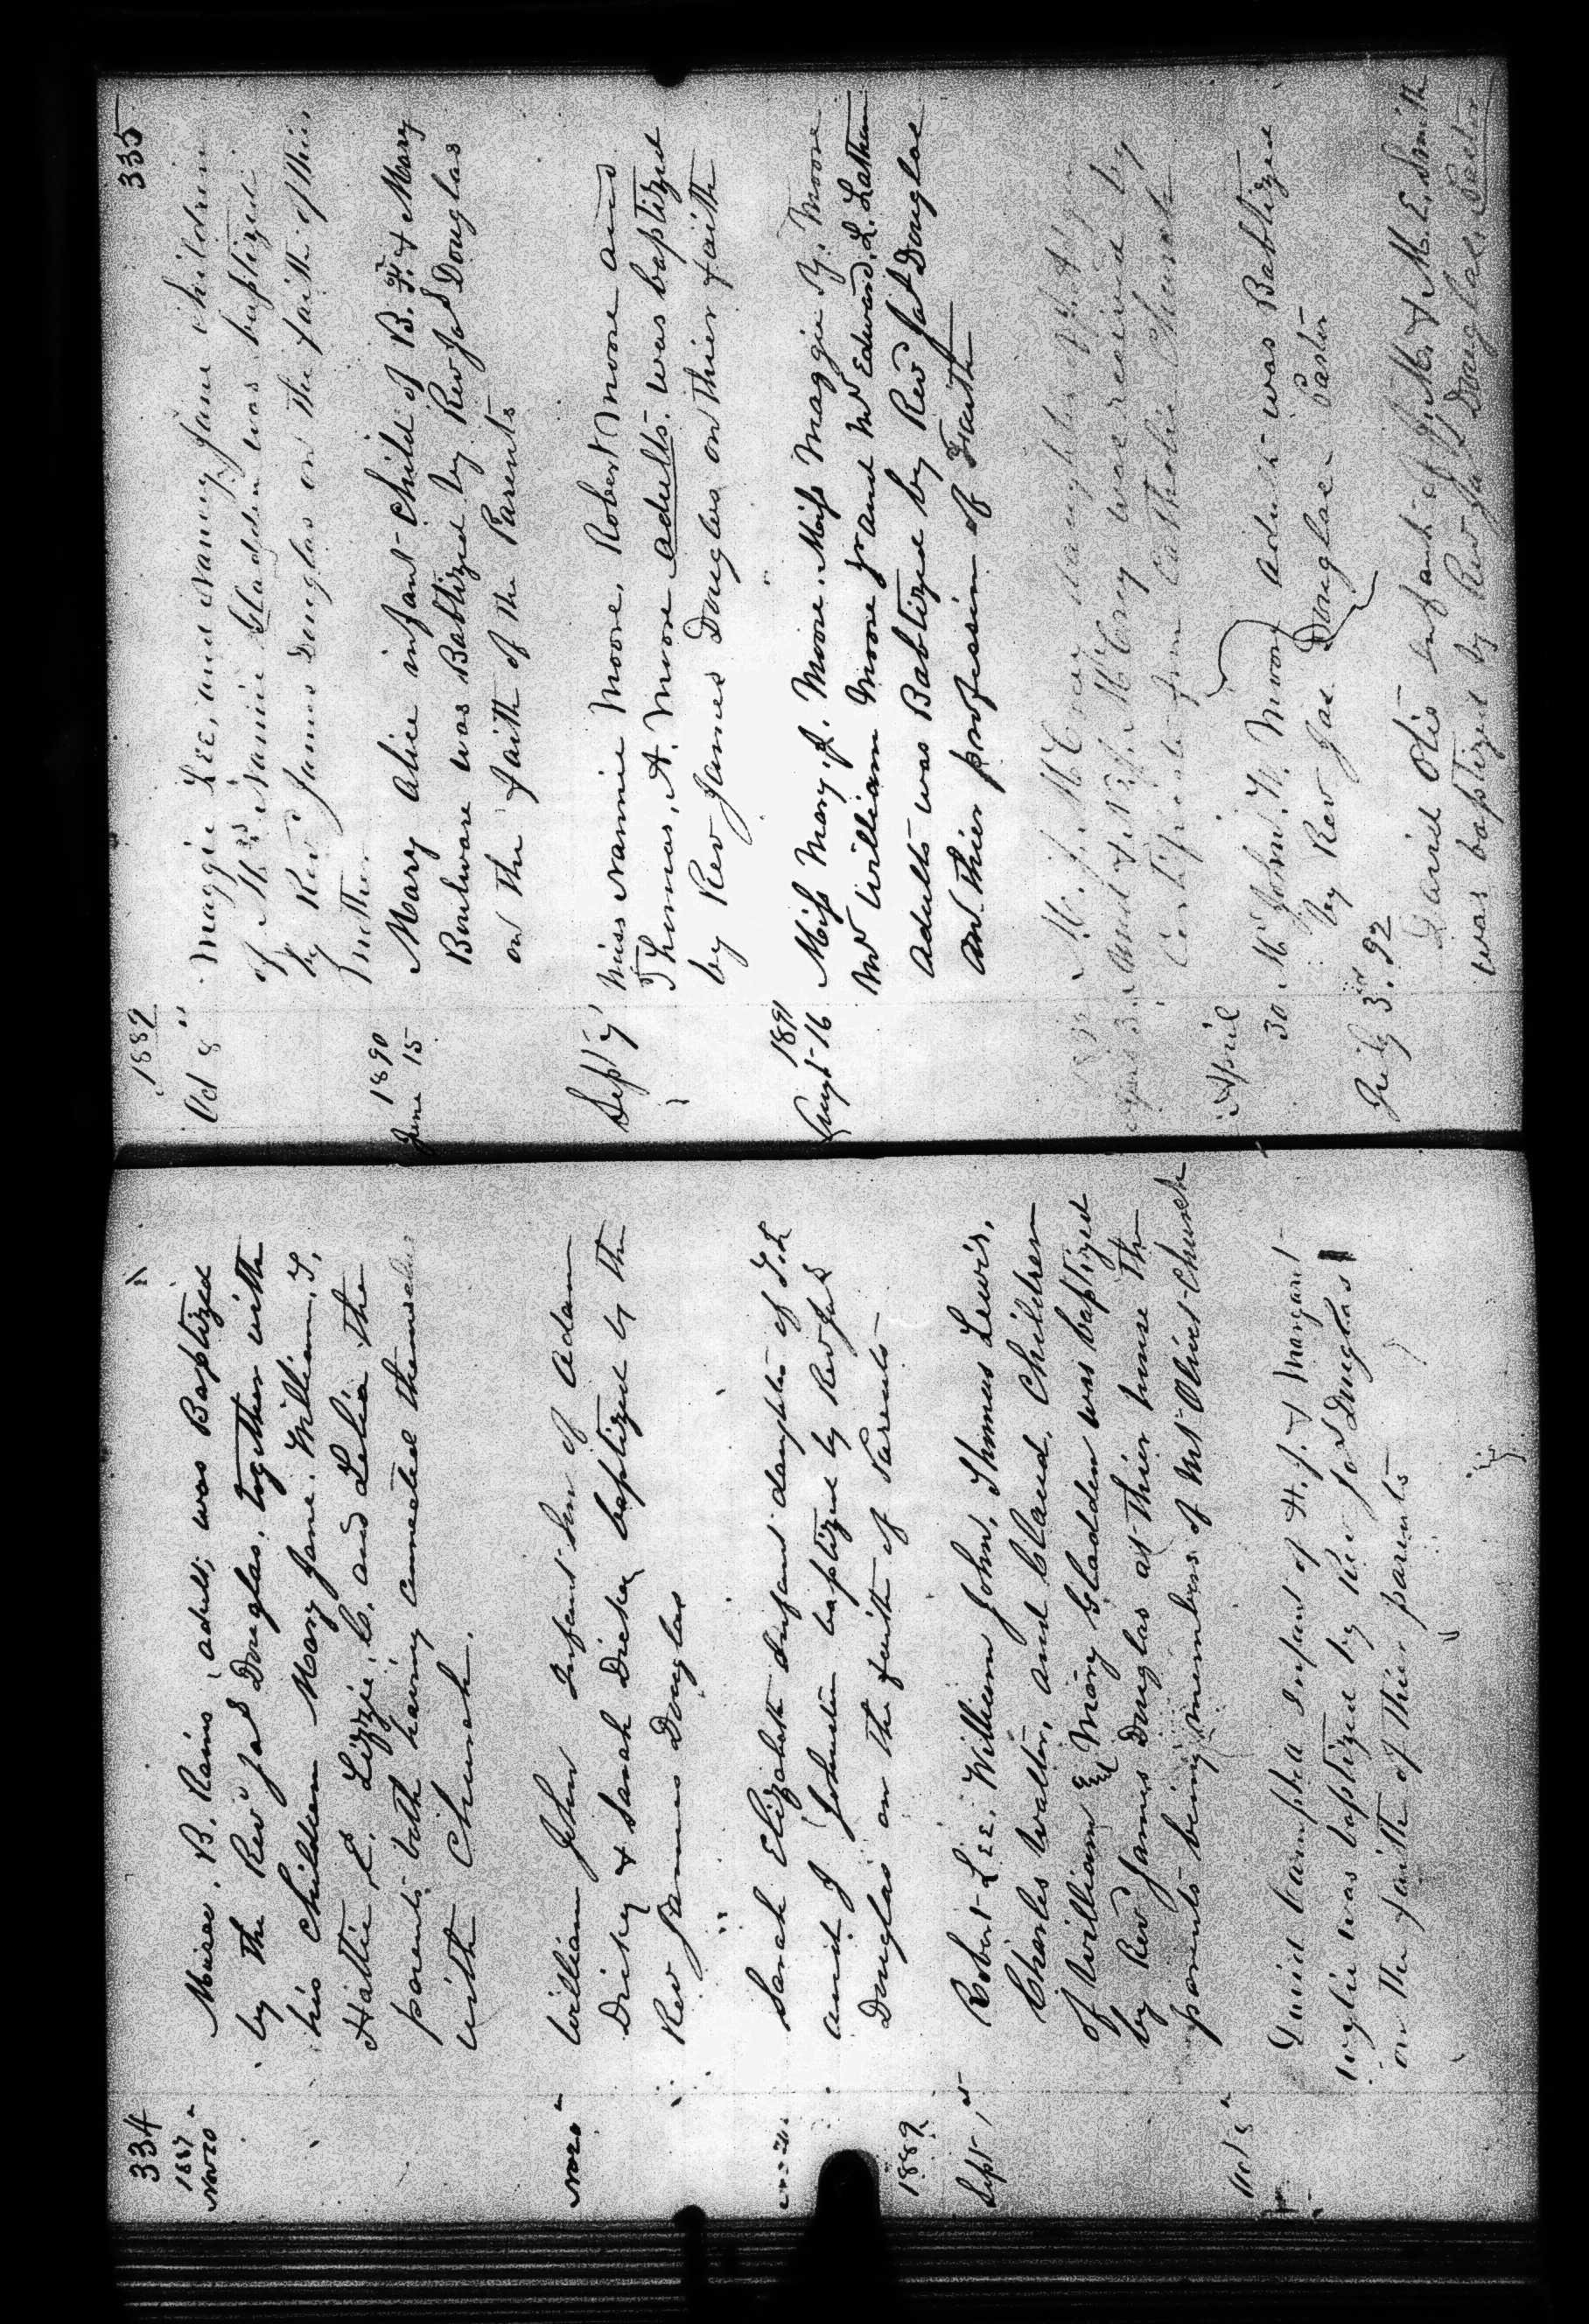 334
1887
Nov 20" Moises. B. Rains, adult; was Baptized
by the Rev'd Jas Douglas, together with
his Children Mary Jane. William. T.
Hattie L. Lizzie. C. and Lelia the
parents both having connected themselves
with Church.
Nov 20" William John Infant Son of Adam
Dickey & Sarah Dickey baptized by the
Rev James Douglas
Sarah Elizabeth Infant daughter of
and J Johnston baptized by Rev Jas
Douglas on the faith of Parents
1889
Sept 1st Robert Lee. William John, Thomas Lewis,
Charles Walton, and Claud. Children
of William & Mary Gladden was baptized
by Rev'd James Douglas at thier house the
parents being members of Mt Olivet Church
Oct 8" David Campbell Infant of H. J. & Margaret
was baptized by Rev Jas Douglas
on the faith of thier parents
335
1889
Oct 8" Maggie Lee, and Nancy Jane children
of Mrs Nannie Gladden was baptized
by Rev'd James Douglas on the faith of thier
mother
1890
June 15 Mary Alice infant child of B. F. & Mary
Boulware was Babtized by Rev Jas Douglas
on the faith of the Parents
Sept 7 Miss Nannie Moore, Robert Moore and
Thomas. A. Moore adults was baptized
by Rev James Douglas on thier faith
1891
Augt 16 Miss Mary. J. Moore. Miss Maggie B. Moore
Mr William Moore Jr and Mr Edward. L. Lathan
adults was Babtized by Rev Jas Douglas
on thier profession of Faith
M. J. McCrory daughter of
and McCrory was received by
Certificate from Catholic Church
April
30 Mr John. N. Moore adult was Babtized
by Rev Jas Douglas Pastor
July 3rd. 92
David Otis Infant of & M. E. Smith
was baptized by Rev Jas Douglas, Pastor